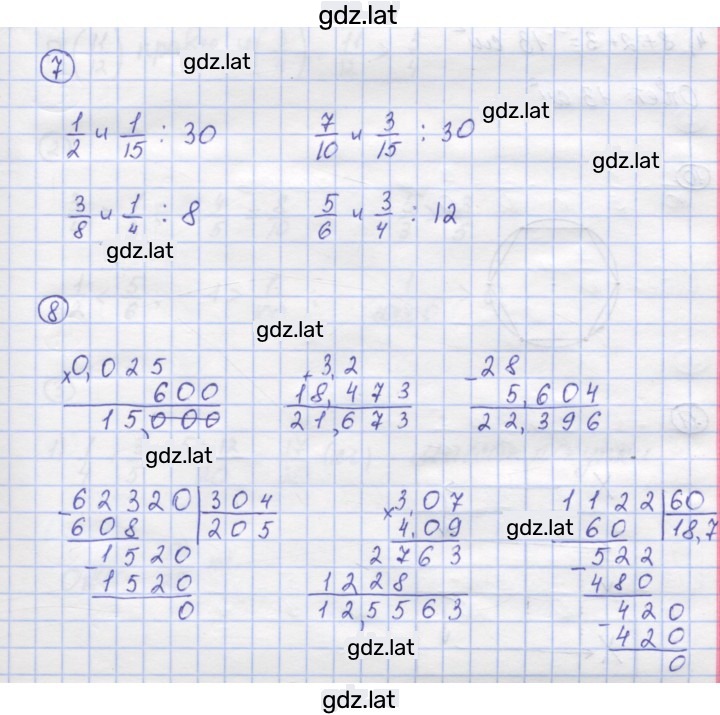 gdz.lat
7
gdz.lat
1/2 и 1/15 : 30     7/10 и 3/15 : 30
gdz.lat
gdz.lat
3/8 и 1/4 : 8     5/6 и 3/4 : 12
gdz.lat
8
gdz.lat
×0,025     +3,2     -28
600     18,473     5,604
15,000     21,673     22,396
gdz.lat
-62320 | 304     ×3,07     -1122 | 60
608     205     4,09     60     18,7
gdz.lat
-1520     2763     -522
1520     1228     480
0     12,5563     -420
420
gdz.lat
0
gdz.lat